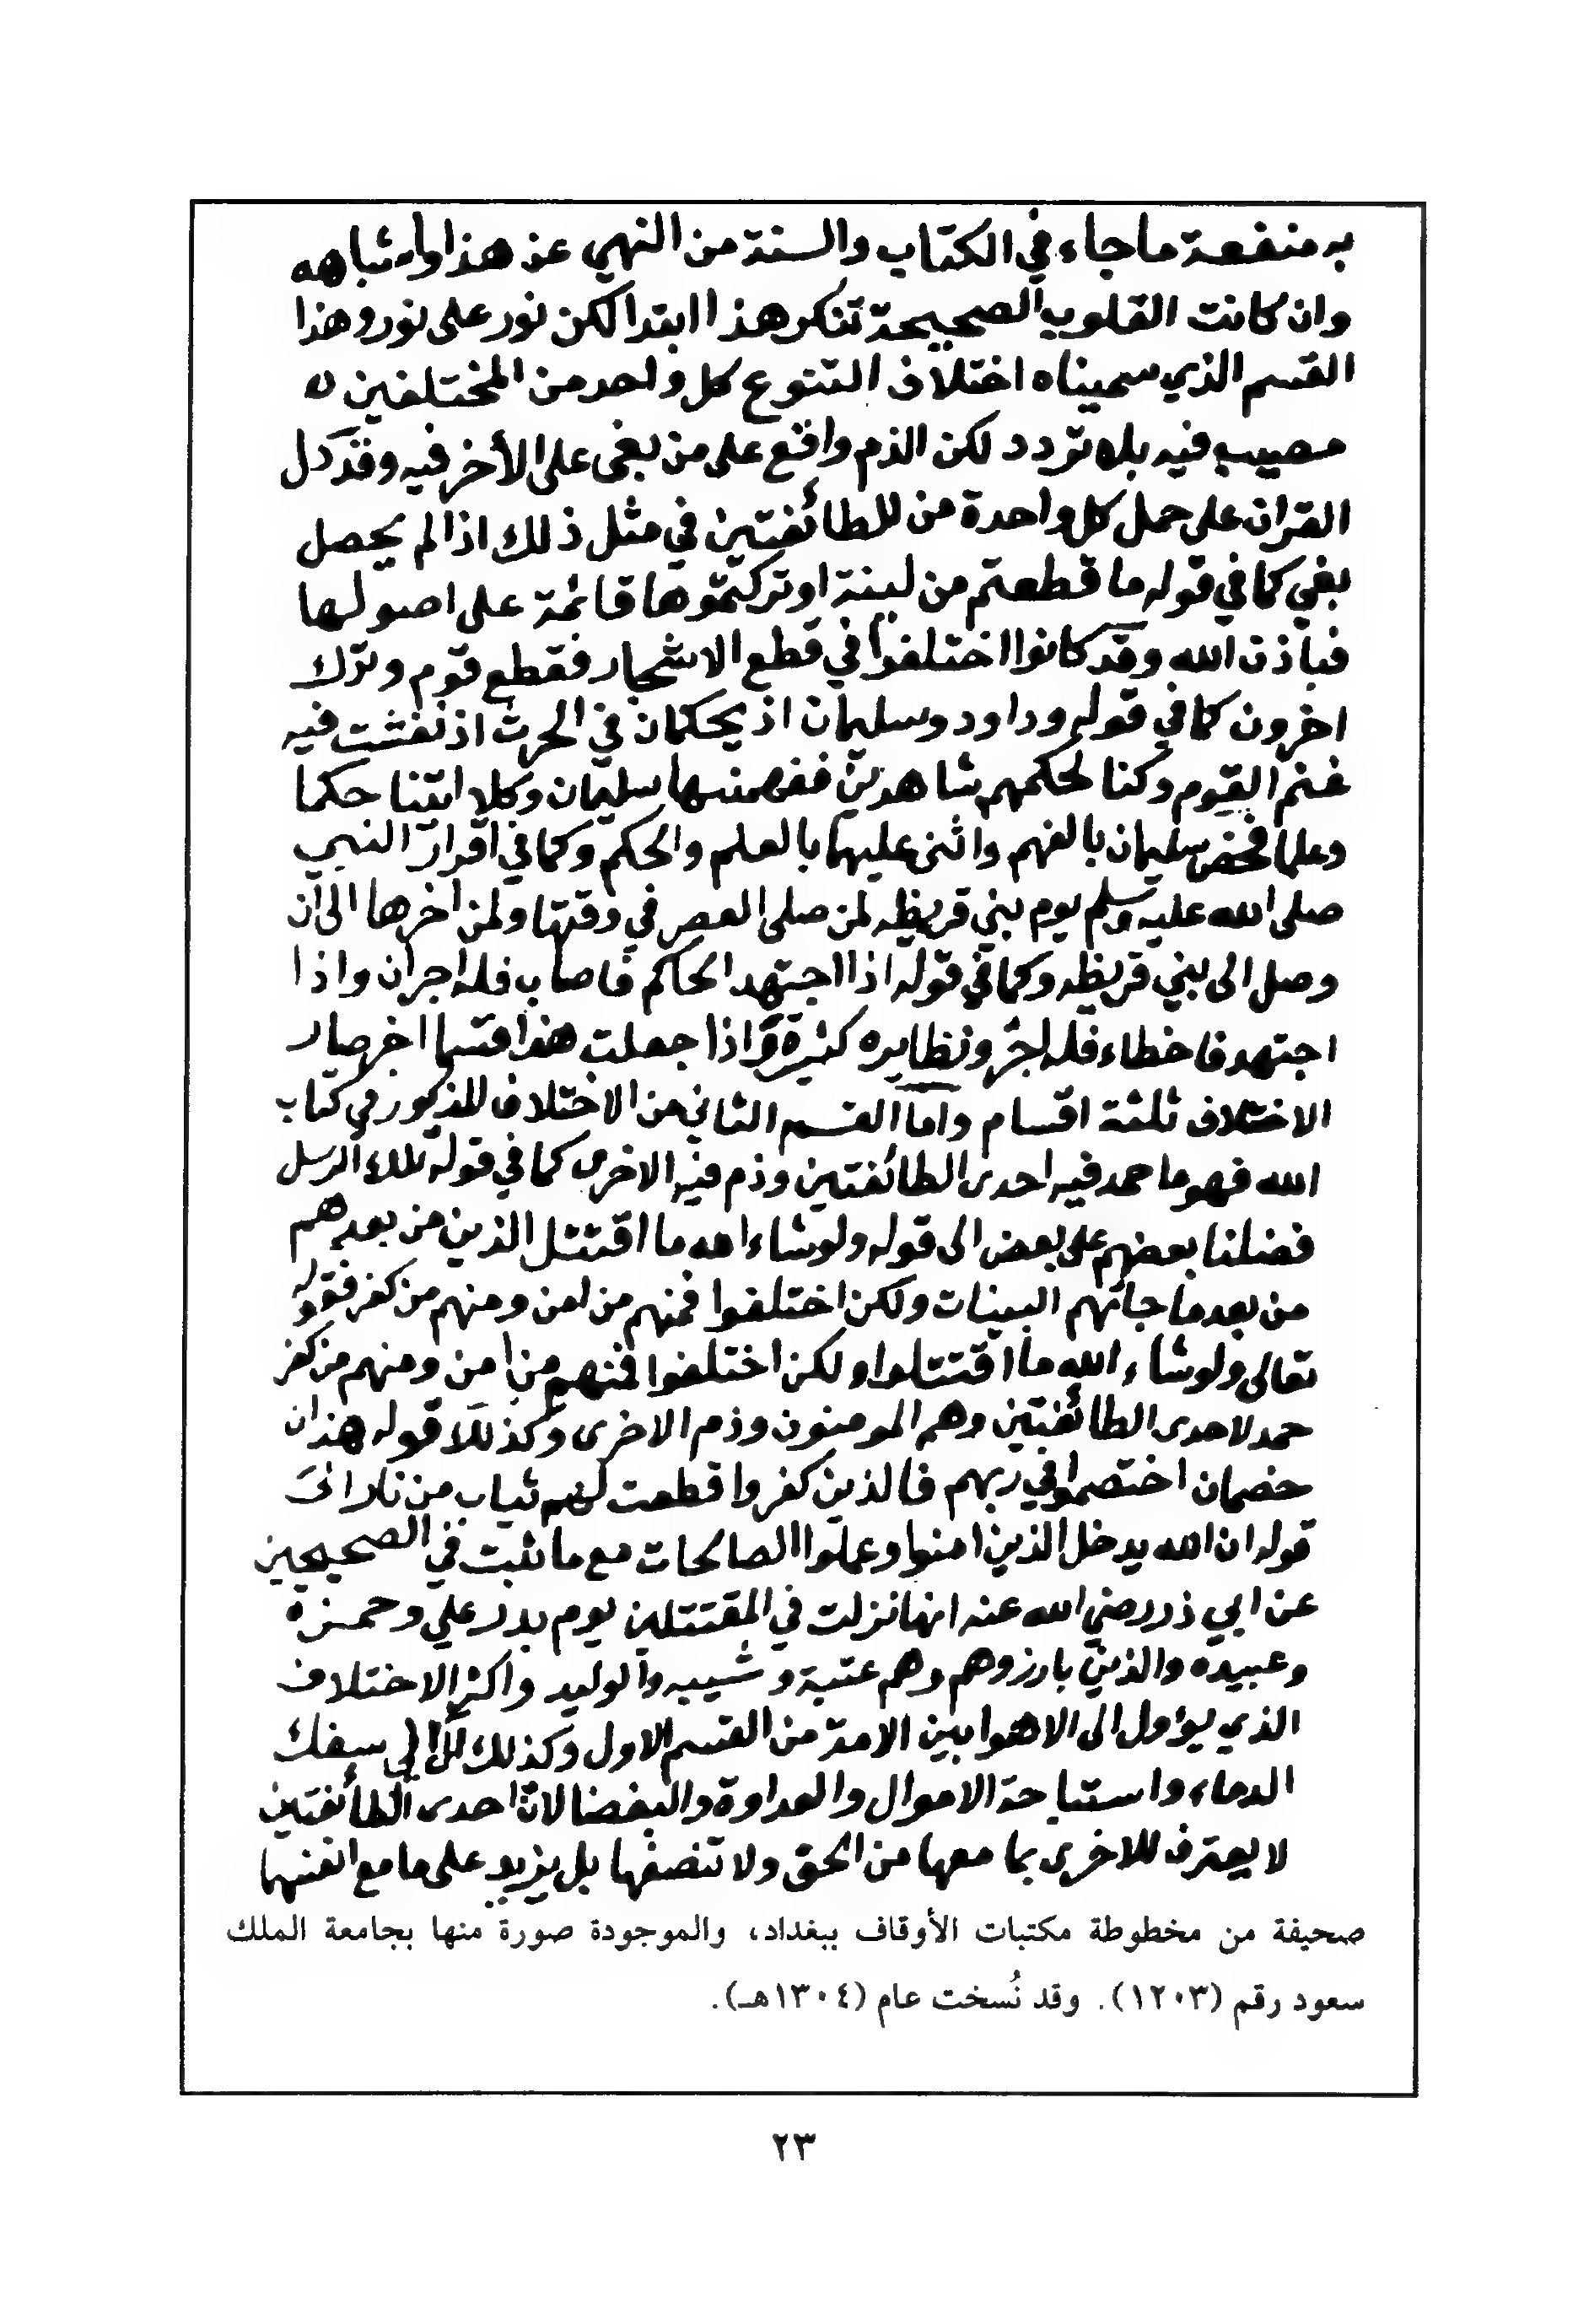 به منفعة ما جاء في الكتاب والسنة من النهي عن هذا واشباهه
وان كانت القلوب الصحيحة تنكر هذا ابتدا لكن نور على نور وهذا
القسم الذي سميناه اختلاف التنوع كل واحد من المختلفين
مصيب فيه بلا تردد لكن الذم واقع على من بغى على الأخر فيه وقد دل
القران على حمل كل واحدة من الطائفتين في مثل ذلك اذا لم يحصل
بغي كما في قوله ما قطعتم من لينة او تركتموها قائمة على اصولها
فباذن الله وقد كانوا اختلفوا في قطع الاشجار فقطع قوم وترك
اخرون كما في قوله وداود وسليمان اذ يحكمان في الحرث اذ نفشت فيه
غنم القوم وكنا لحكمهم شاهدين ففهمنها سليمان وكلا اتينا حكما
وعلما فخص سليمان بالفهم واثنى عليهما بالعلم والحكم وكما في اقرار النبي
صلى الله عليه وسلم يوم بني قريظه لمن صلى العصر في وقتها ولمن اخرها الى ان
وصل الى بني قريظه وكما في قوله اذا اجتهد الحاكم فاصاب فله اجران واذا
اجتهد فاخطاء فله اجر ونظايره كثيرة واذا جعلت هذا قسما اخر صار
الاختلاف ثلثة اقسام واما القسم الثاني من الاختلاف المذكور في كتاب
الله فهو ما حمد فيه احدى الطائفتين وذم فيه الاخرى كما في قوله تلك الرسل
فضلنا بعضهم على بعض الى قوله ولو شاء الله ما اقتتل الذين من بعدهم
من بعد ما جاتهم البينات ولكن اختلفوا فمنهم من امن ومنهم من كفر فقوله
تعالى ولو شاء الله ما اقتتلوا ولكن اختلفوا فمنهم من امن ومنهم من كفر
حمد لاحدى الطائفتين وهم المومنون وذم الاخرى وكذلك قوله هذان
خصمان اختصموا في ربهم فالذين كفروا قطعت لهم ثياب من نار الى
قوله ان الله يدخل الذين امنوا وعملوا الصالحات مع ما ثبت في الصحيحين
عن ابي ذر رضي الله عنه انها نزلت في المقتتلين يوم بدر علي وحمزة
وعبيده والذين بارزوهم وهم عتبة وشيبه والوليد واكثر الاختلاف
الذي يؤول الى الاهوا بين الامة من القسم الاول وكذلك الى سفك
الدماء واستباحة الاموال والعداوة والبغضا لان احدى الطائفتين
لا يعترف للاخرى بما معها من الحق ولا تنصفها بل يزيد على ما مع انفسها
صحيفة من مخطوطة مكتبات الأوقاف ببغداد، والموجودة صورة منها بجامعة الملك
سعود رقم (١٢٠٣). وقد نُسخت عام (١٣٠٤هـ).
٢٣